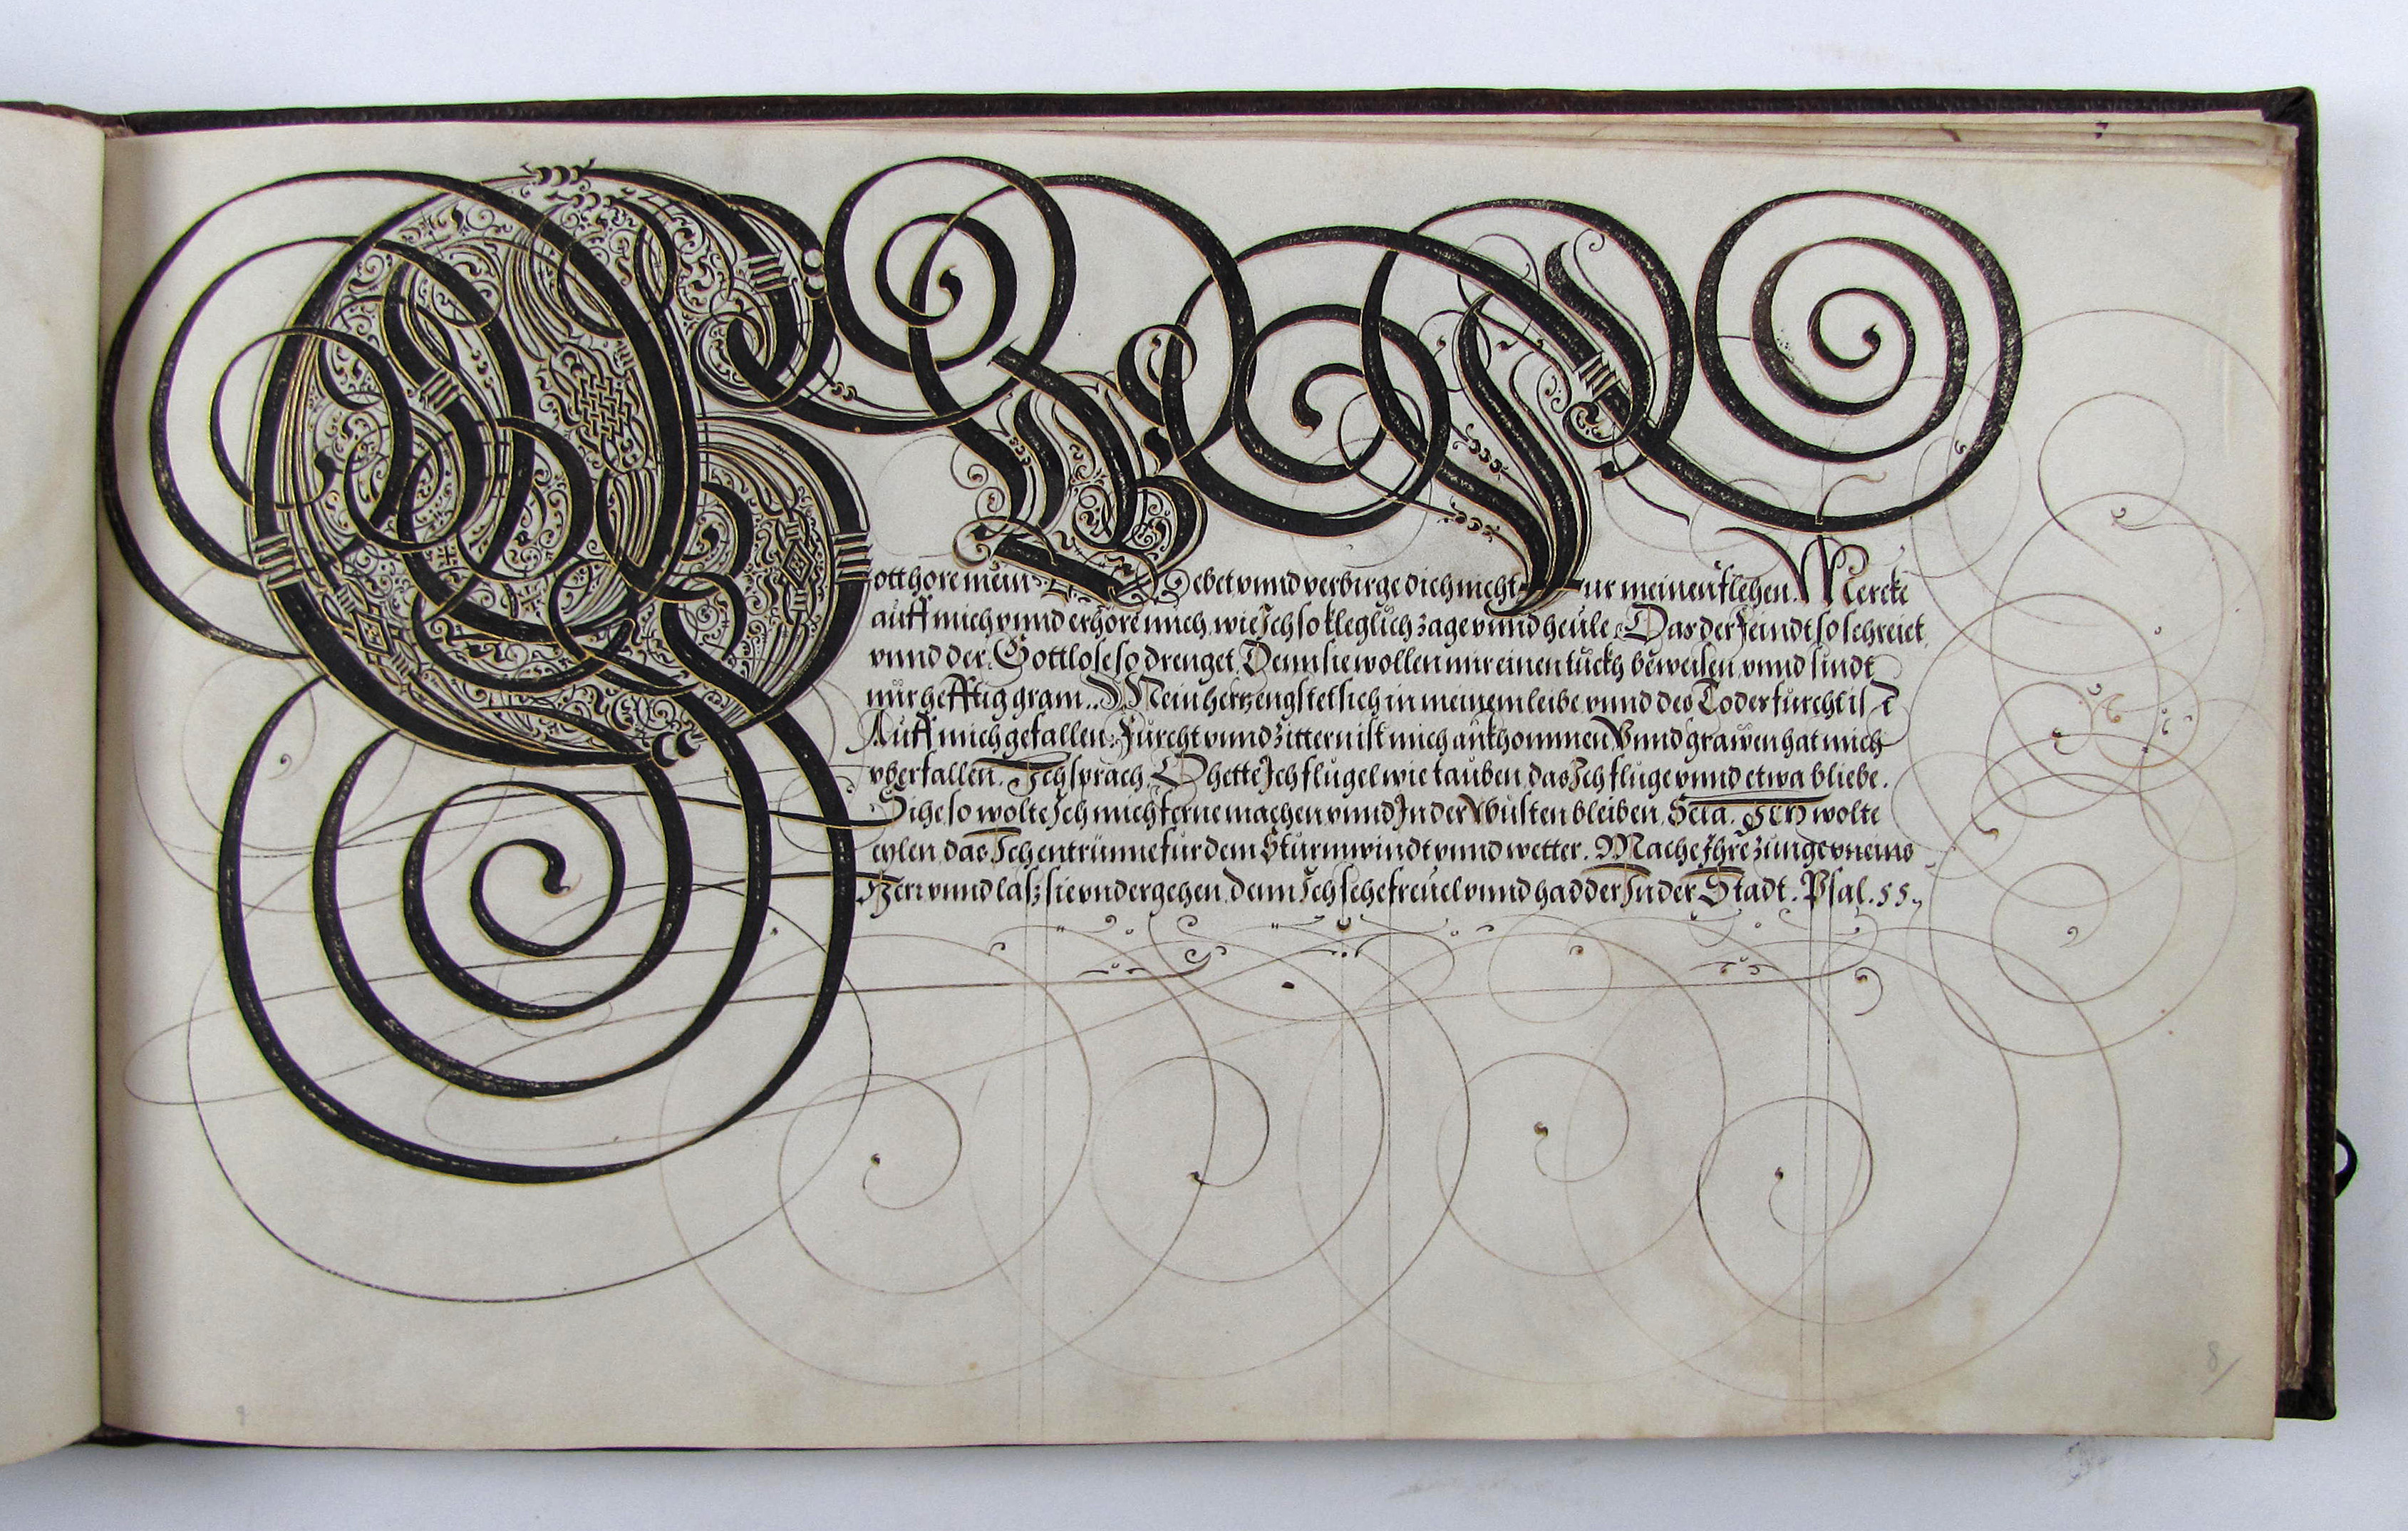 Gott hore mein Gebet vnnd verbirge dich nicht fur meinem flehen. Mercke
auff mich vnnd erhöre mich, wie Ich so kleglich zage vnnd heüle. Das der feindt so schreiet
vnnd der Gottlose so drenget, Denn sie wollen mir einen tückh beweisen, vnnd sindt
mir hefftig gram. Mein hertz engstet sich in meinem leibe vnnd des Todes furcht ist
Auff mich gefallen. Furcht vnnd zittern ist mich ankhommen Vnnd grawen hat mich
vberfallen. Ich sprach, O hette Ich flugel wie tauben, das Ich fluge vnnd etwa bliebe.
Sihe so wolte Ich mich ferne machen vnnd In der Wüsten bleiben. Sela. Ich wolte
eylen, das Ich entrünne fur dem Sturmwindt vnnd wetter. Mache Ihre zunge vneins
Herr vnnd lass sie vndergehen, denn Ich sehe freuel vnnd hadder In der Stadt. Psal. 55.
8